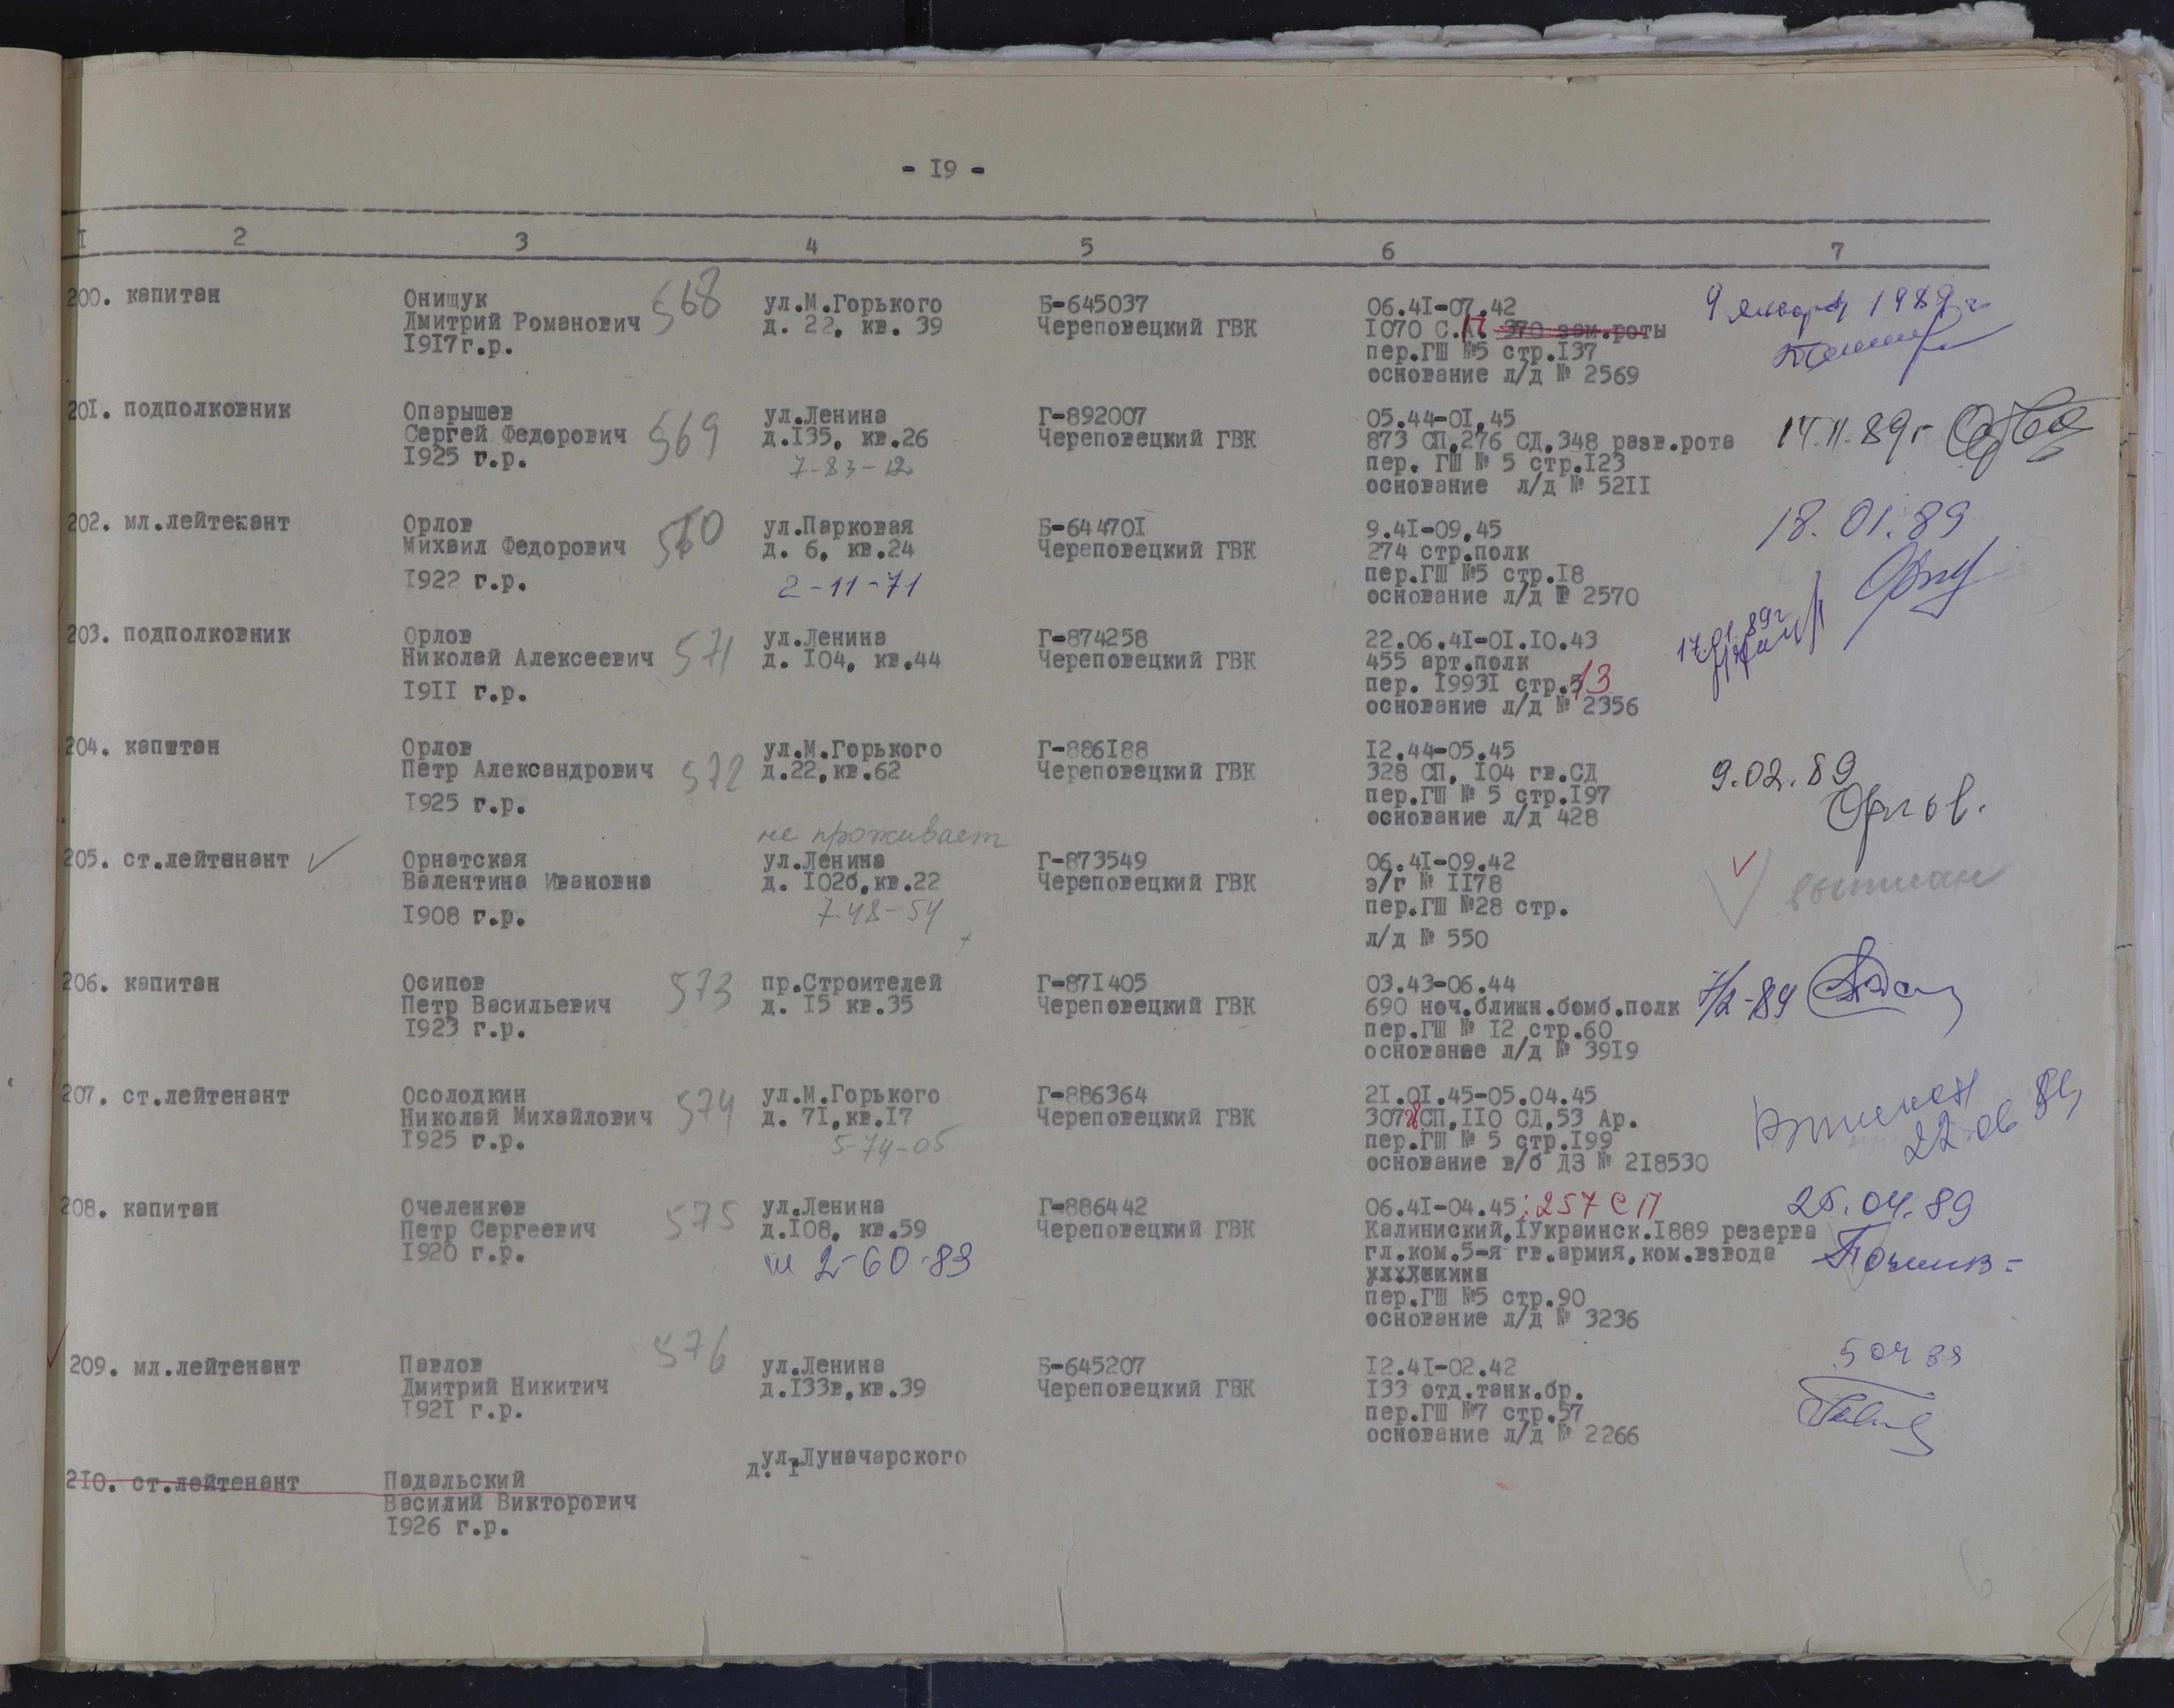 - I9 -
I 2 3 4 5 6 7
200. капитан
Онищук
Дмитрий Романович
I9I7г.р.
568
ул.М.Горького
д. 22, кв. 39
Б-645037
Череповецкий ГВК
06.4I-07.42
I070 С.П. 370 зам.роты
пер.ГШ №5 стр.I37
основание л/д № 2569
9 января 1989 г
20I. подполковник
Опарышев
Сергей Федорович
I925 г.р.
569
ул.Ленина
д.I35, кв.26
7-83-12
Г-892007
Череповецкий ГВК
05.44-0I.45
873 СП,276 СД,348 разв.рота
пер. ГШ № 5 стр.I23
основание л/д № 52II
17.11.89г
202. мл.лейтенант
Орлов
Михаил Федорович
I922 г.р.
ул.Парковая
д. 6, кв.24
2-11-71
Б-64470I
Череповецкий ГВК
9.4I-09.45
274 стр.полк
пер.ГШ №5 стр.I8
основание л/д № 2570
18.01.89
203. подполковник
Орлов
Николай Алексеевич
I9II г.р.
571
ул.Ленина
д. I04, кв.44
Г-874258
Череповецкий ГВК
22.06.4I-0I.I0.43
455 арт.полк
пер. I993I стр.13
основание л/д № 2356
17.01.89г
204. капитан
Орлов
Петр Александрович
I925 г.р.
572
ул.М.Горького
д.22,кв.62
Г-886I88
Череповецкий ГВК
I2.44-05.45
328 СП, I04 гв.СД
пер.ГШ № 5 стр.I97
основание л/д 428
9.02.89
Орлов.
205. ст.лейтенант
Орнатская
Валентина Ивановна
I908 г.р.
не проживает
ул.Ленина
д. I02б,кв.22
7-48-54
Г-873549
Череповецкий ГВК
06.4I-09.42
э/г № II78
пер.ГШ №28 стр.
л/д № 550
выписан
206. капитан
Осипов
Петр Васильевич
I923 г.р.
573
пр.Строителей
д. I5 кв.35
Г-87I405
Череповецкий ГВК
03.43-06.44
690 ноч.ближн.бомб.полк
пер.ГШ № I2 стр.60
основание л/д № 39I9
7/2-89
207. ст.лейтенант
Осолодкин
Николай Михайлович
I925 г.р.
574
ул.М.Горького
д. 7I,кв.I7
5-74-05
Г-886364
Череповецкий ГВК
2I.0I.45-05.04.45
СП,II0 СД,53 Ар.
пер.ГШ № 5 стр.I99
основание в/б ДЗ № 2I8530
22.06 89
208. капитан
Очеленков
Петр Сергеевич
I920 г.р.
575
ул.Ленина
д.I08, кв.59
2-60-83
Г-886442
Череповецкий ГВК
06.4I-04.45; 257 СП
Калиниский,IУкраинск.I889 резерва
гл.ком.5-я гв.армия,ком.взвода
пер.ГШ №5 стр.90
основание л/д № 3236
25.04.89
209. мл.лейтенант
Павлов
Дмитрий Никитич
I92I г.р.
576
ул.Ленина
д.I33в,кв.39
Б-645207
Череповецкий ГВК
I2.4I-02.42
I33 отд.танк.бр.
пер.ГШ №7 стр.57
основание л/д № 2266
5 04 89
2I0. ст.лейтенант
Падальский
Василий Викторович
I926 г.р.
ул.Луначарского
д. I